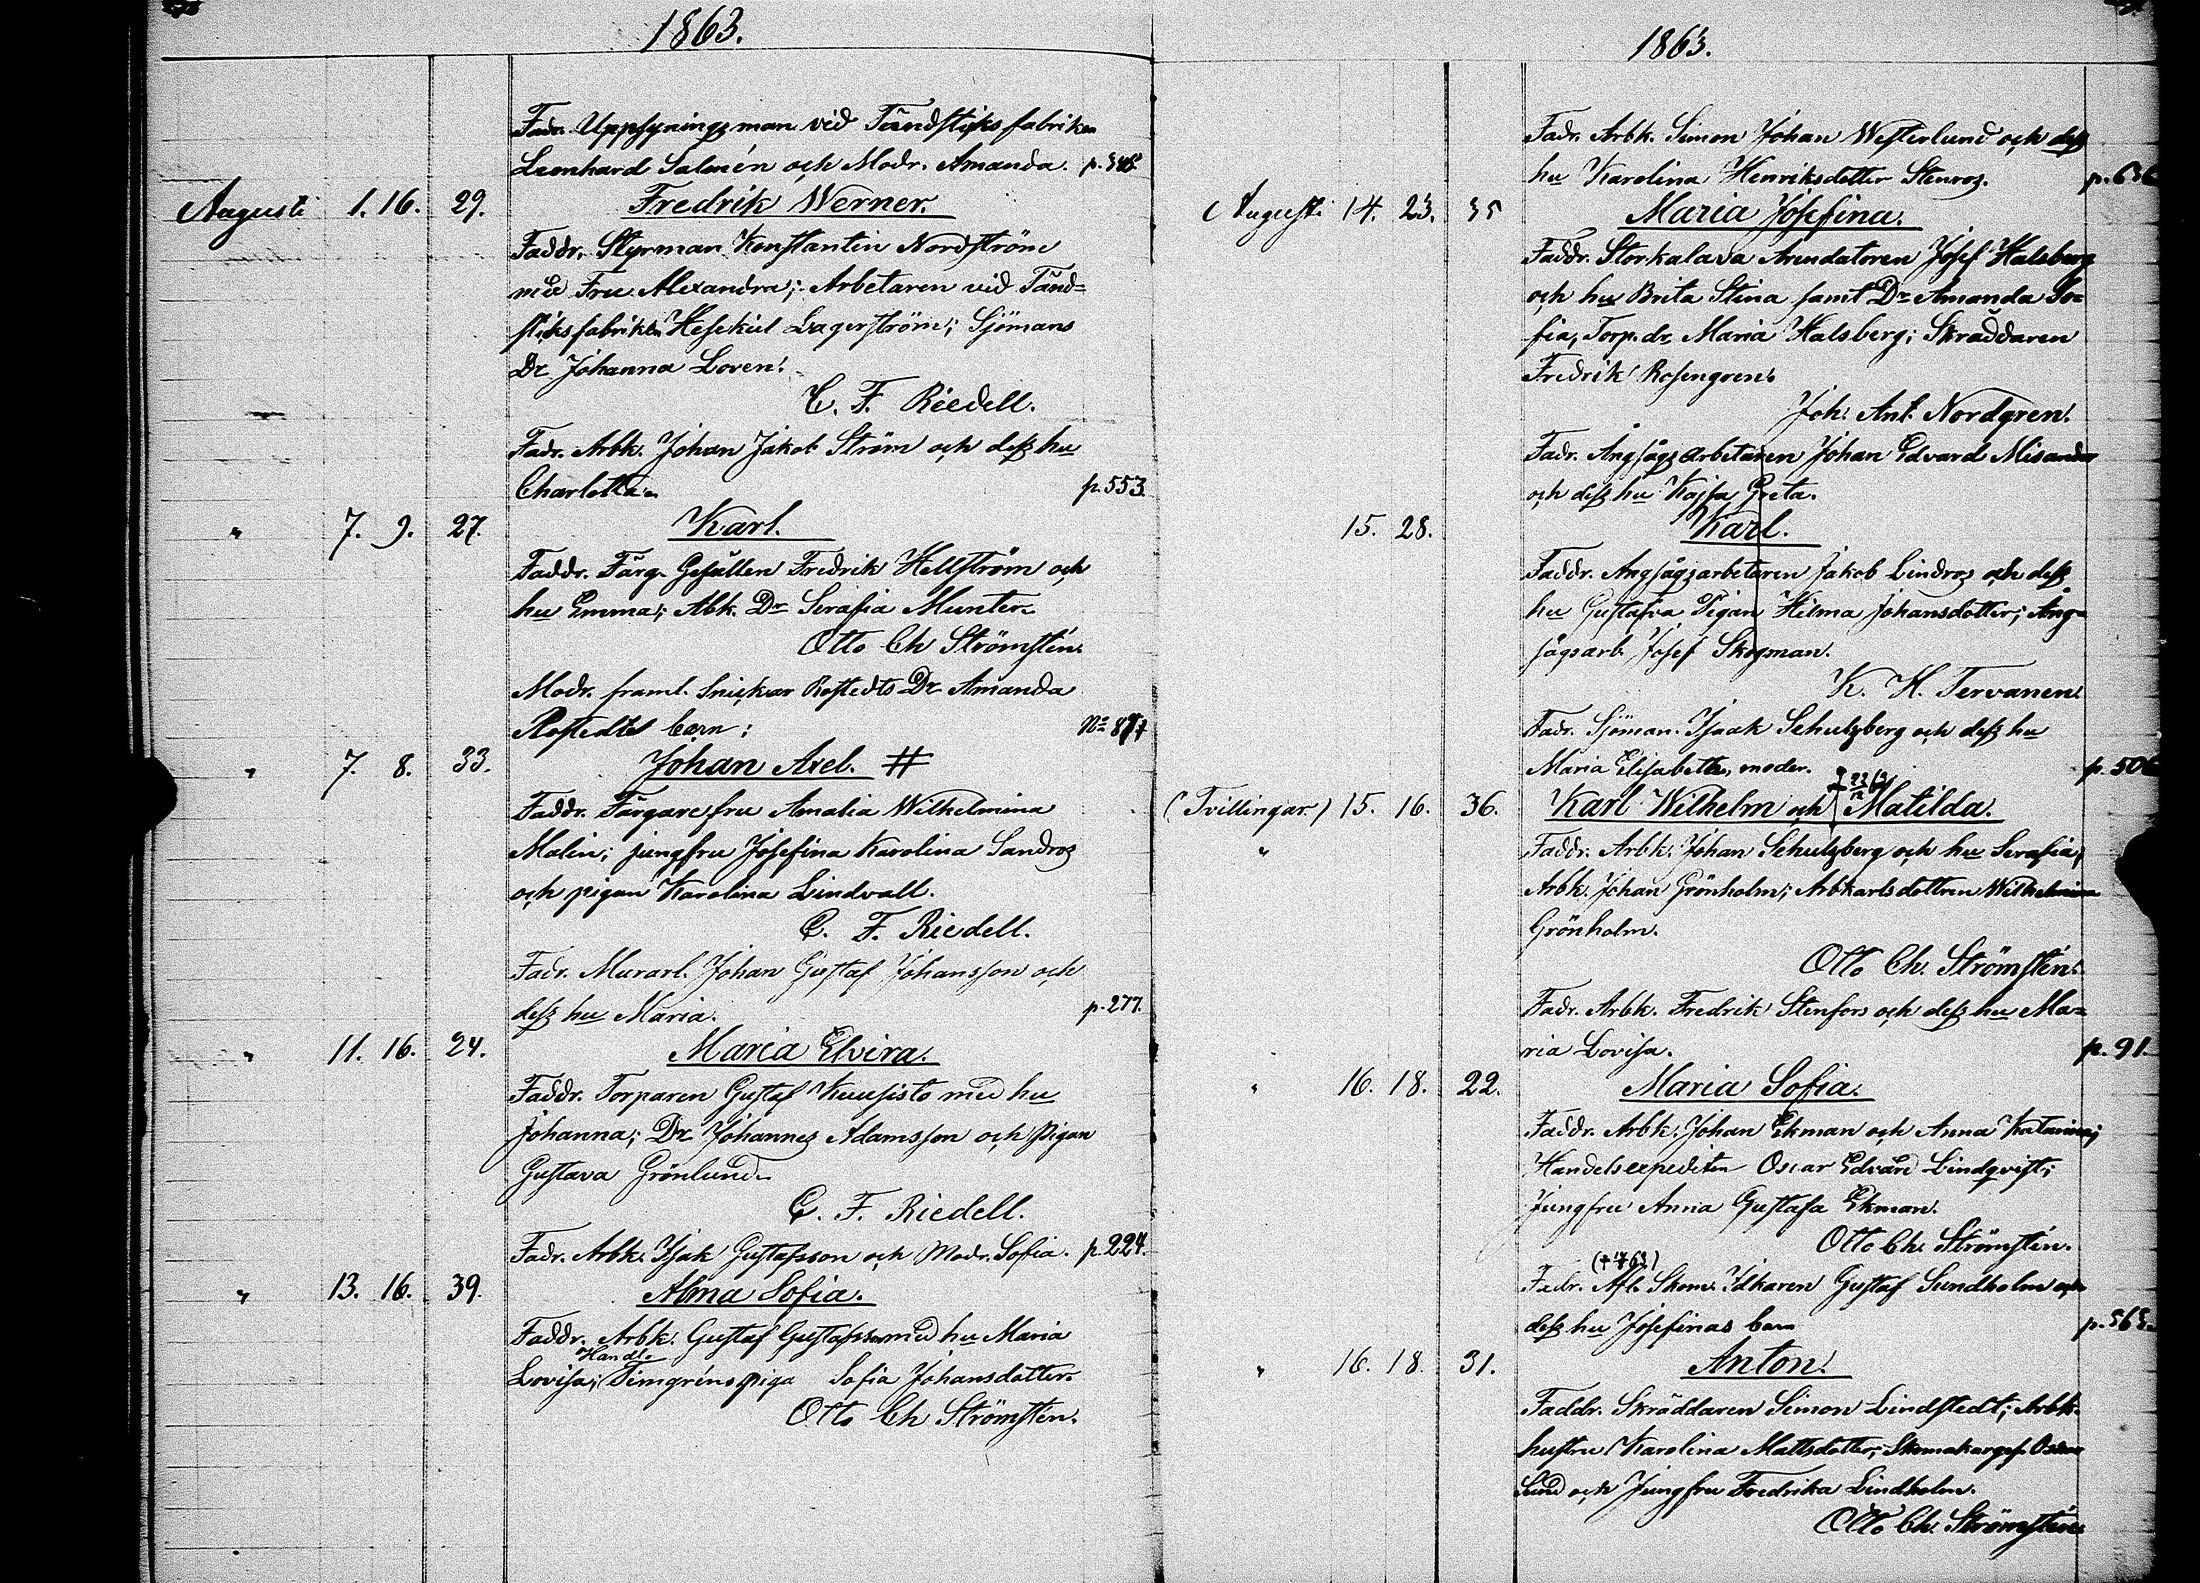 1863.
Fadr. Uppsyningsman vid Tändsticksfabriken
Leonhard Salmén och Modr. Amanda.
Augusti 1. 16. 29. Fredrik Werner.
Faddr. Styrman Konstantin Nordström
med Fru Alexandra; Arbetaren vid Tänd=
sticksfabriken Hesekiel Lagerström; Sjömans
Dr Johanna Loven.
C. F. Riedell.
Fadr. Arbk. Johan Jakob Ström och dess hu
Charlotta. p. 553
" 7. 9. 27. Karl.
Faddr. Färg. Gesällen Fredrik Hellström och
hu Emma; Abk. Dr Serafia Munter.
Otto Ch Strömstén.
Modr. framl. Snickar Rostedts Dr Amanda
Rostedts barn; No
" 7. 8. 33. Johan Axel. #
Faddr. Färgarefru Amalia Wilhelmina
Malin; jungfru Josefina Karolina Sandros
och pigan Karolina Lindvall.
C. F. Riedell.
Fadr. Murarl. Johan Gustaf Johansson och
dess hu Maria. p. 277.
" 11. 16. 24. Maria Elvira.
Faddr. Torparen Gustaf Kuusisto med hu
Johanna; Dr Johannes Adamsson och Pigan
Gustava Grönlund.
C. F. Riedell.
Fadr. Arbk. Isak Gustafsson och Modr. Sofia. p. 224.
" 13. 16. 39. Alma Sofia.
Faddr. Arbk. Gustaf Gustafsson med hu Maria
Handl.
Lovisa; Timgréns piga Sofia Johansdotter.
Otto Ch Strömstén.
1863.
Fadr. Arbk. Simon Johan Westerlund och dess
hu Karolina Henriksdotter Stenros. p. 636
Augusti 14. 23. 35 Maria Josefina.
Faddr. Storkalava Arendatoren Josef Halsberg
och hu Brita Stina samt Dr Amanda So=
fia, Torp. dr Maria Halsberg; Skräddaren
Fredrik Rosengren.
Joh. Ant. Nordgren.
Fadr. Ångsågsarbetaren Johan Edvard Misander
och dess hu Kajsa Greta.
15. 28. Karl.
Faddr. Ångsågsarbetaren Jakob Lindros och dess
hu Gustafva, Pigan Hilma Johansdotter; Ång=
sågsarb. Josef Skogman.
K. H. Tervanen.
Fadr. Sjöman Isaak Schultzberg och dess hu
Maria Elisabetta, moder. p. 506
(Tvillingar) 15. 16. 36. Karl Wilhelm och Matilda.
" Faddr. Arbk. Johan Schultzberg och hu Serafia;
Arbk. Johan Grönholm; Arbkarlsdottren Wilhelmina
Grönholm.
Otto Ch. Strömstén.
Fadr. Arbk. Fredrik Stenfors och dess hu Ma=
ria Lovisa. p. 91.
" 16. 18. 22. Maria Sofia.
Faddr. Arbk. Johan Ekman och Anna Katarina;
Handelsexpediten Oscar Edvard Lindqvist;
Jungfru Anna Gustafa Ekman.
Otto Ch. Strömstén.
Fadr. Afl. Skom. Idkaren Gustaf Sundholm och
dess hu Josefinas barn p. 565.
" 16. 18. 31. Anton.
Faddr. Skräddaren Simon Lindstedt; Arbk.
hustru Karolina Mattsdotter; Skomakarges. Oscar
Lund och Jungfru Fredrika Lindholm.
Otto Ch. Strömstén.